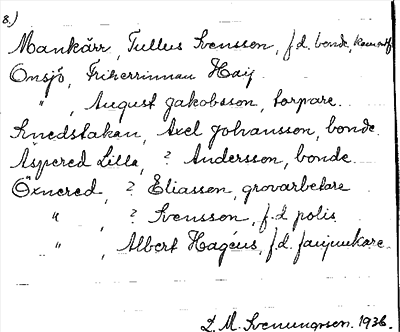 8.)
Mankärr, Tullus Svensson, f.d. bonde,
Onsjö, Friherrinnan Haij
" , August Jakobsson, torpare.
Knedstakan, Axel Johansson, bonde.
Äspered Lilla, ? Andersson, bonde.
Öxnered, ? Eliasson, grovarbetare
" , ? Svensson, f.d polis
" , Albert Hagéus, f.d.
L. M. Svenungsson. 1936.